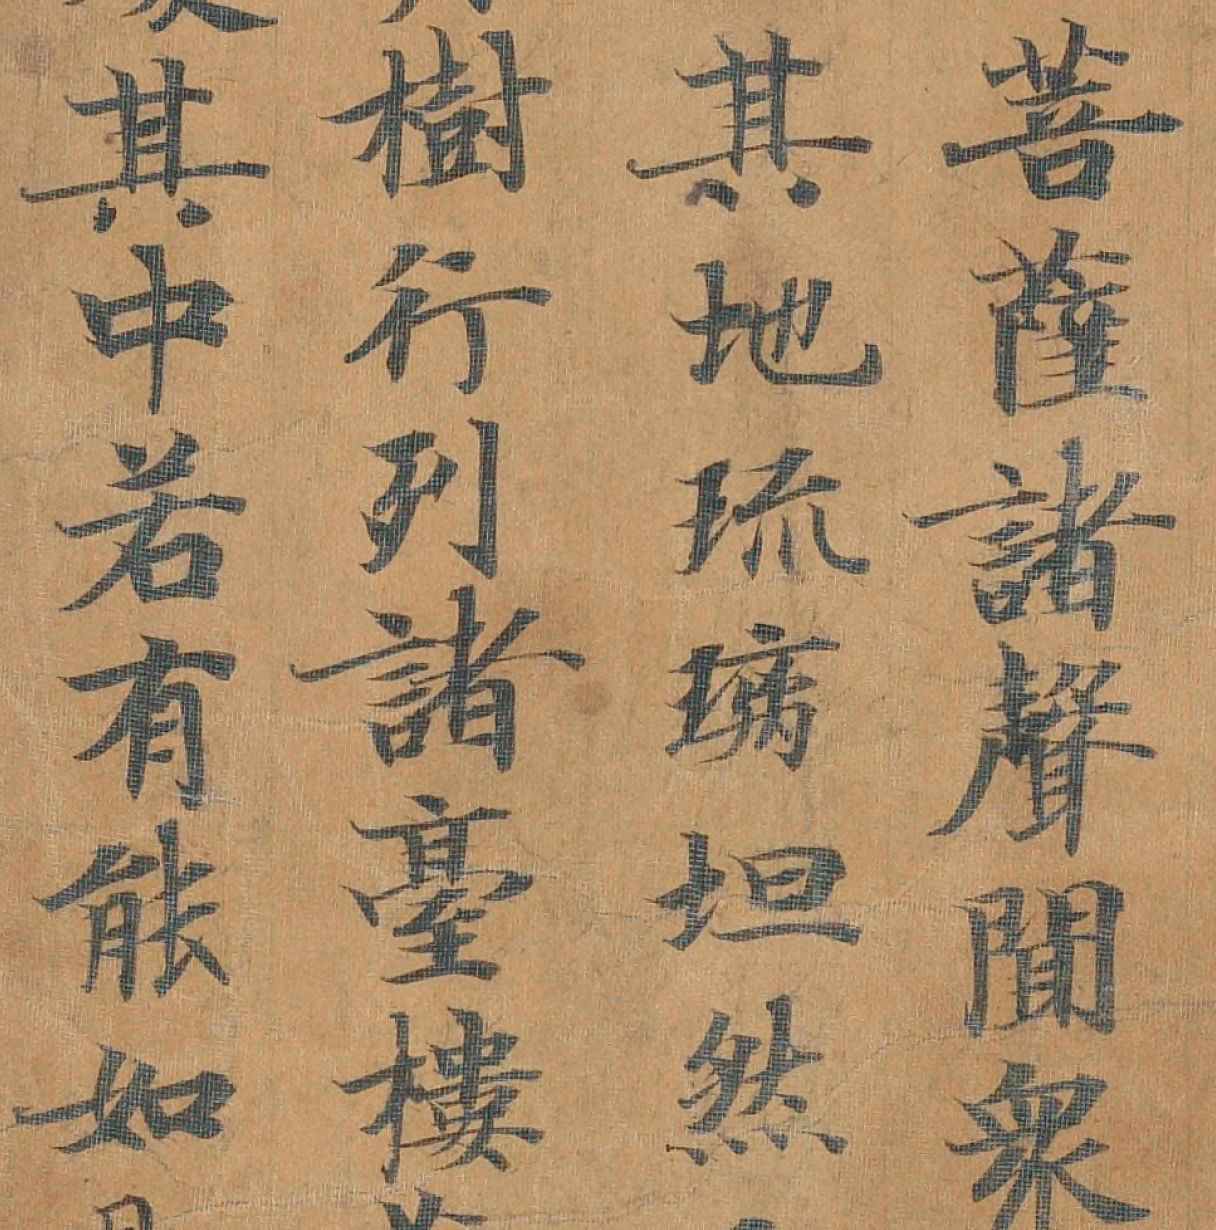 菩薩諸聲聞衆
其地琉璃坦然
樹行列諸臺樓
其中若有能如